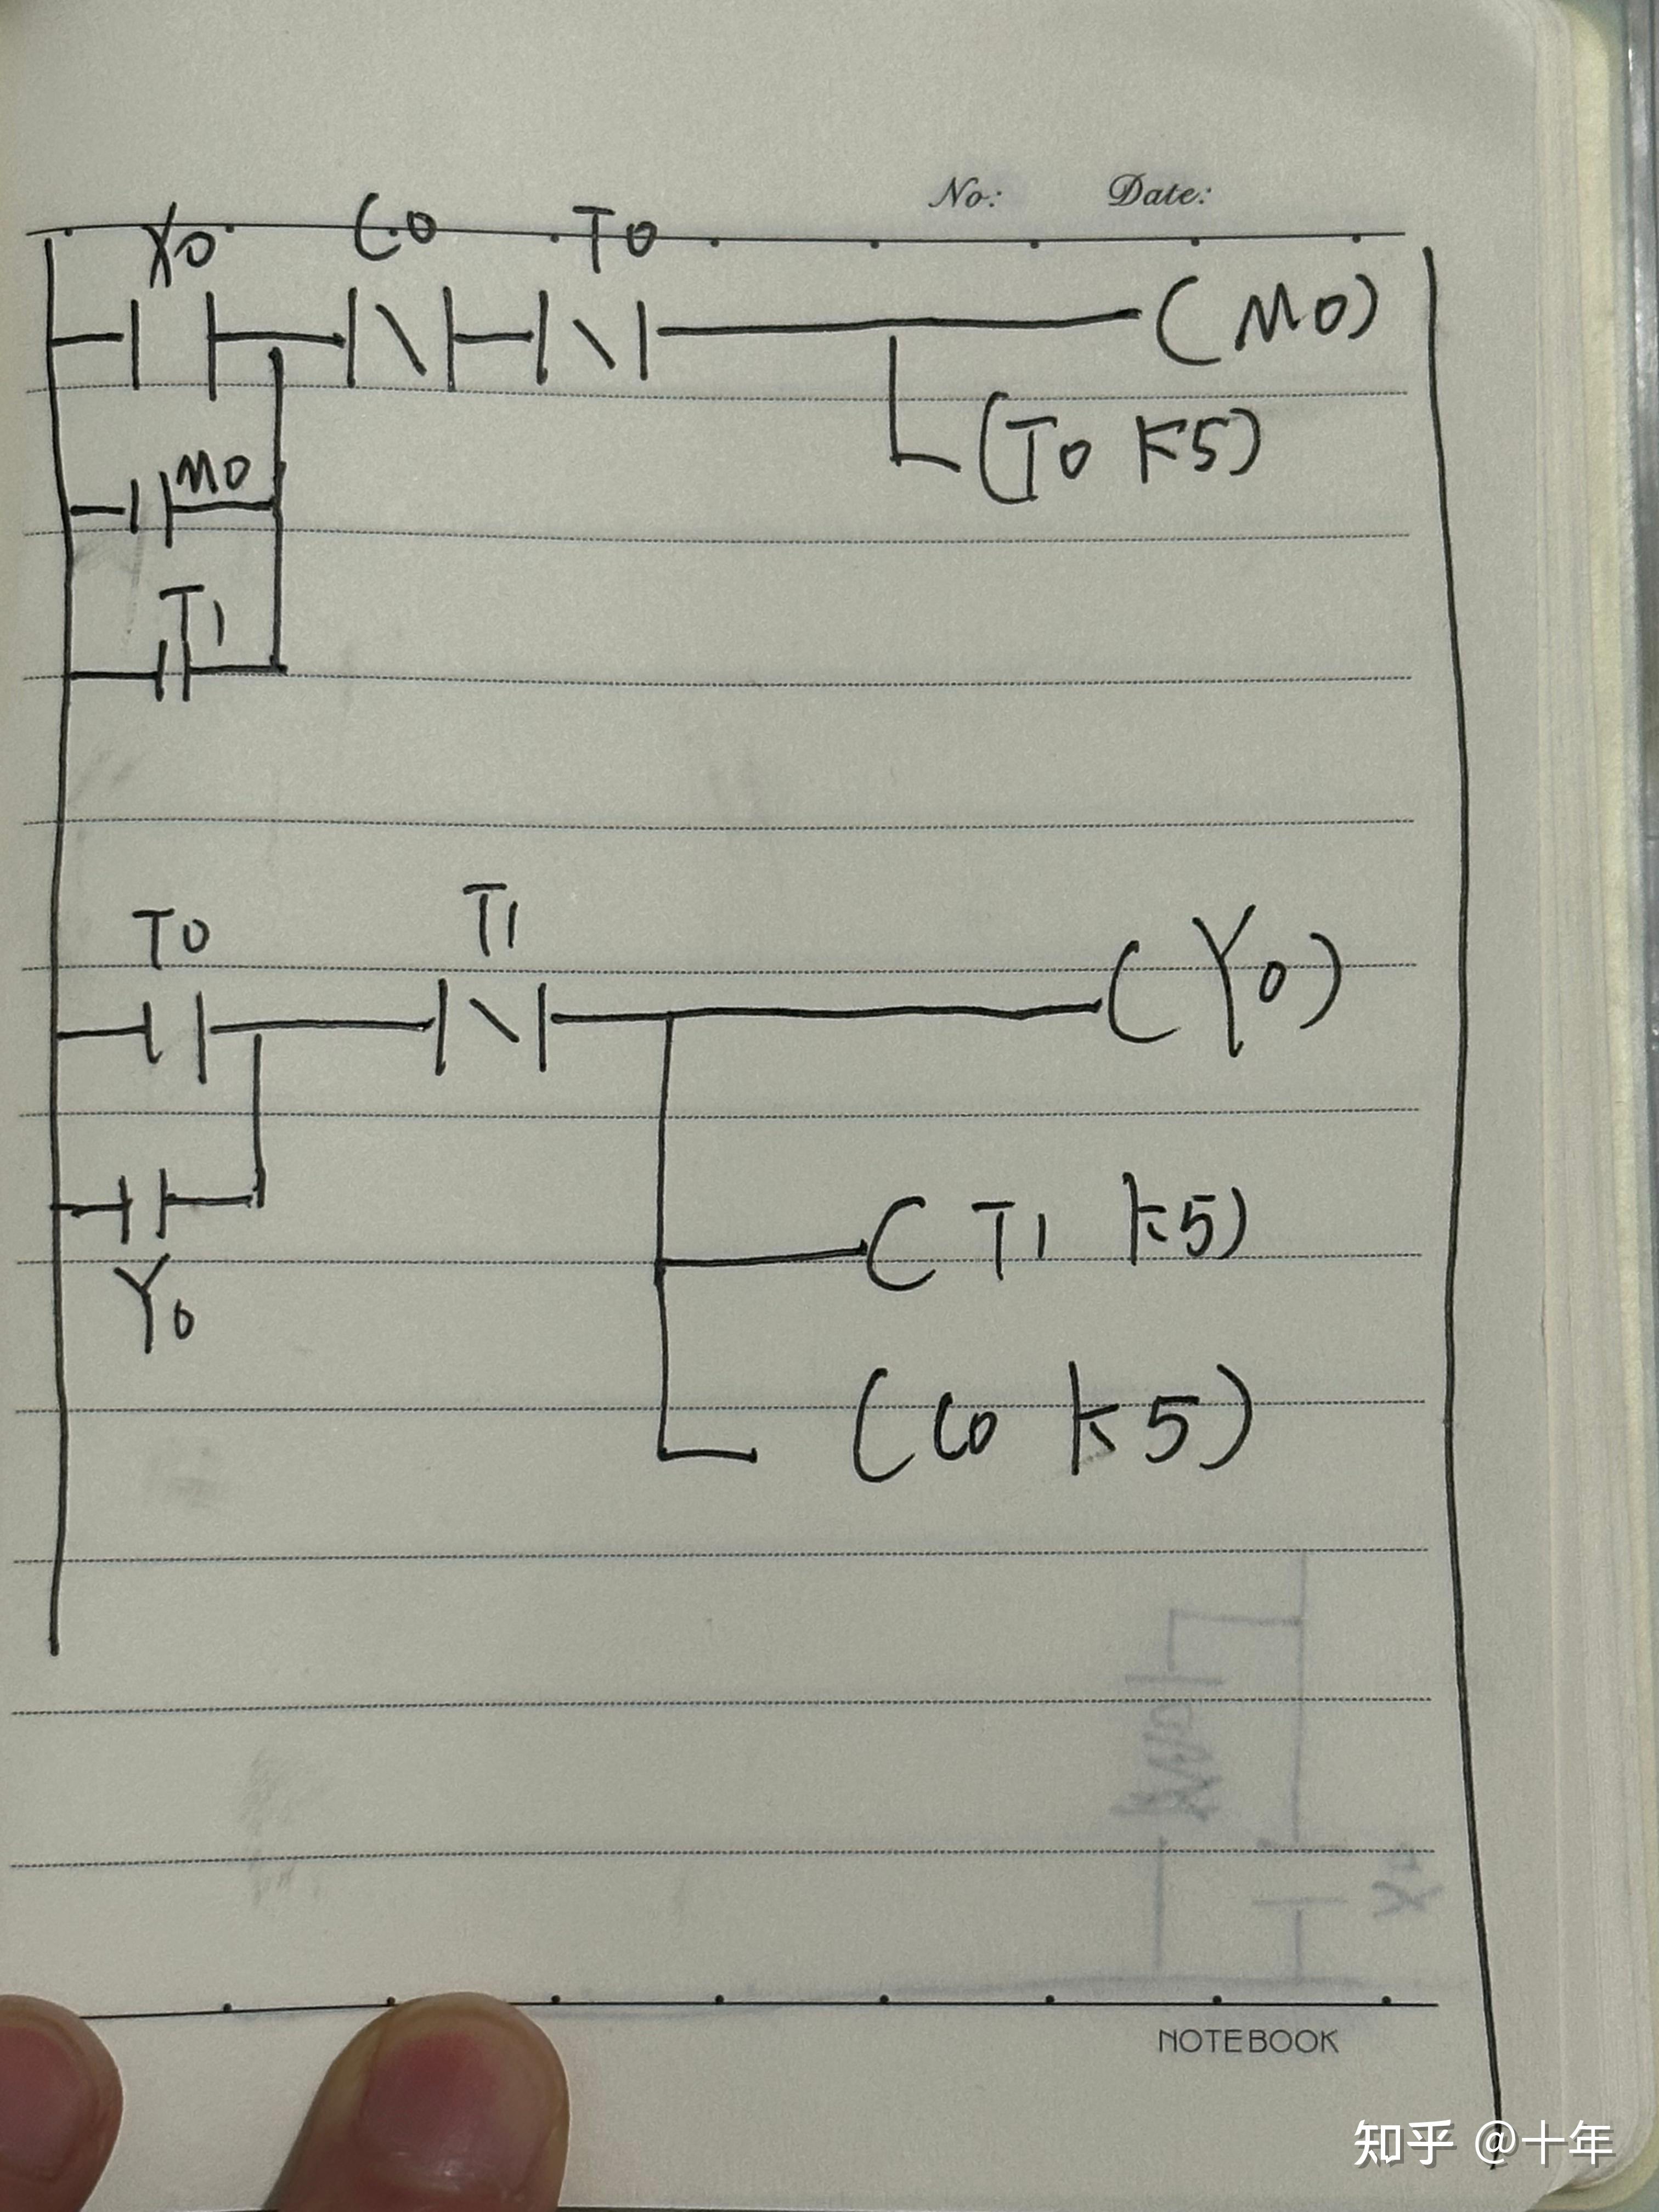 No: Date:
X0 C0 T0
(M0)
(T0 K5)
M0
T1
T0 T1
(Y0)
(T1 K5)
Y0
(C0 K5)
NOTEBOOK
知乎 @十年